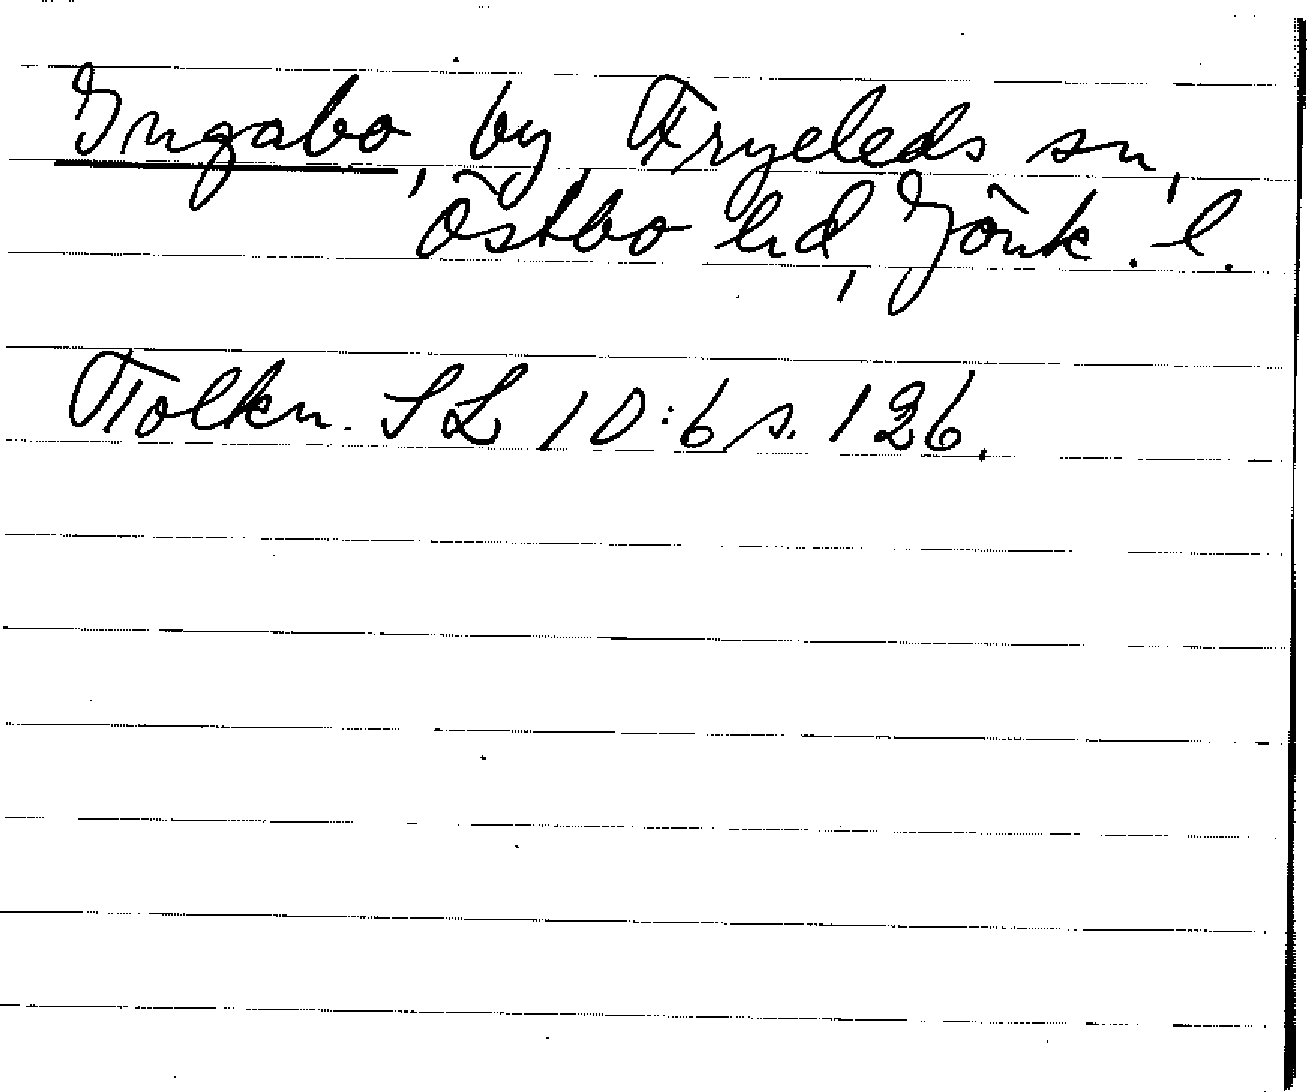 Ingabo, by, Fryeleds sn,
Östbo hd, Jönk. l.
Tolkn. SL 10:6 s. 126.